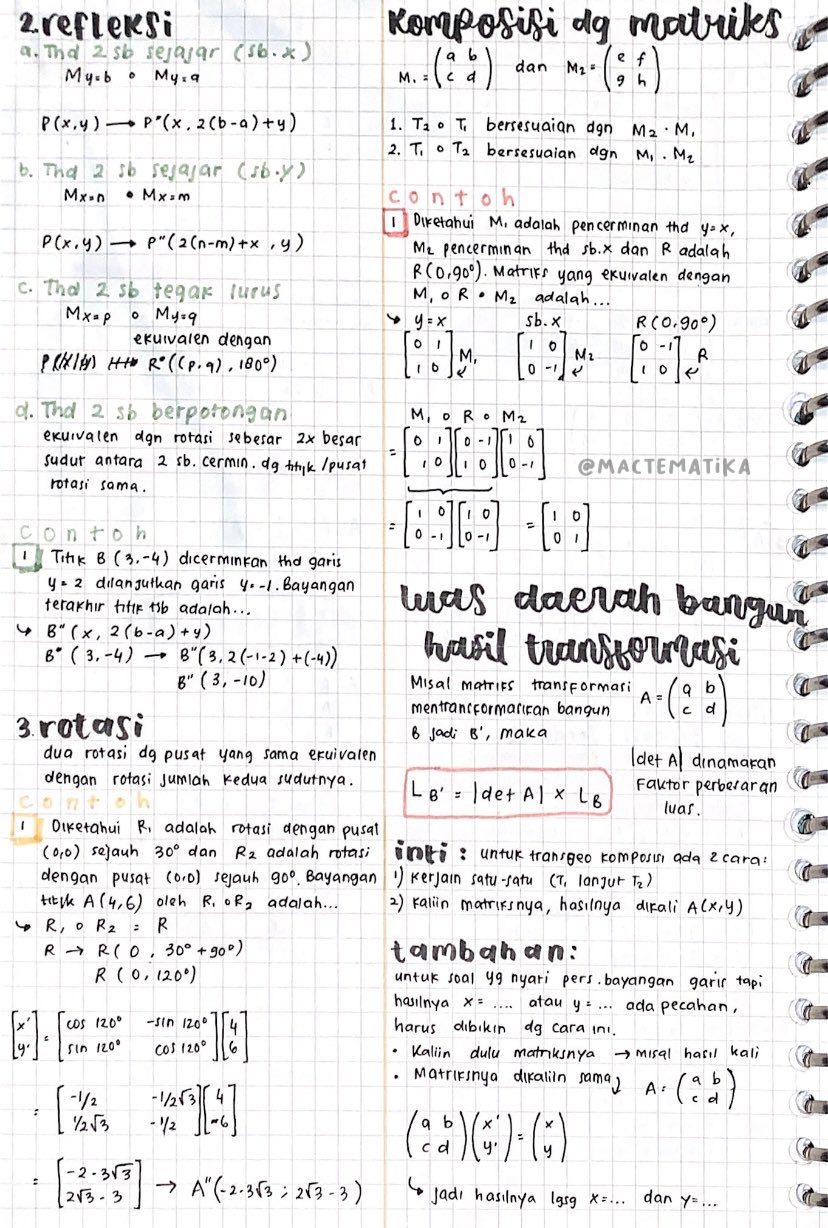 2. refleksi
a. Thd 2 sb sejajar (sb.x)
My=b ∘ My=a
P(x,y) → P"(x, 2(b-a)+y)
b. Thd 2 sb sejajar (sb.y)
Mx=n • Mx=m
P(x,y) → P"(2(n-m)+x, y)
c. Thd 2 sb tegak lurus
Mx=p ∘ My=q
ekuivalen dengan
R°((p,q), 180°)
d. Thd 2 sb berpotongan
ekuivalen dgn rotasi sebesar 2x besar
sudut antara 2 sb. cermin. dg titik /pusat
rotasi sama.
contoh
1 Titik B (3,-4) dicerminkan thd garis
y = 2 dilanjutkan garis y=-1. Bayangan
terakhir titik tsb adalah...
↳ B"(x, 2(b-a)+y)
B° (3,-4) → B"(3, 2(-1-2)+(-4))
B" (3, -10)
3. rotasi
dua rotasi dg pusat yang sama ekuivalen
dengan rotasi jumlah kedua sudutnya.
contoh
1 Diketahui R₁ adalah rotasi dengan pusat
(0,0) sejauh 30° dan R₂ adalah rotasi
dengan pusat (0,0) sejauh 90°. Bayangan
titik A(4,6) oleh R₁ ∘ R₂ adalah...
↳ R₁ ∘ R₂ = R
R → R(0, 30°+90°)
R (0, 120°)
[x'] = [cos 120° -sin 120°] [4]
[y'] [sin 120° cos 120°] [6]
= [-1/2 -1/2√3] [4]
[1/2√3 -1/2] [-6]
= [-2-3√3]
[2√3-3] → A"(-2-3√3 ; 2√3-3)
Komposisi dg matriks
M₁ = (a b) dan M₂ = (e f)
(c d) (g h)
1. T₂ ∘ T₁ bersesuaian dgn M₂ · M₁
2. T₁ ∘ T₂ bersesuaian dgn M₁ · M₂
contoh
1 Diketahui M₁ adalah pencerminan thd y=x,
M₂ pencerminan thd sb.x dan R adalah
R(0,90°). Matriks yang ekuivalen dengan
M₁ ∘ R • M₂ adalah...
↳ y=x sb.x R(0,90°)
[0 1] M₁ [1 0] M₂ [0 -1] R
[1 0] [0 -1] [1 0]
M₁ ∘ R ∘ M₂
= [0 1] [0 -1] [1 0]
[1 0] [1 0] [0 -1]
@MACTEMATIKA
= [1 0] [1 0] = [1 0]
[0 -1] [0 -1] [0 1]
luas daerah bangun
hasil transformasi
Misal matriks transformasi A = (a b)
mentransformasikan bangun (c d)
B jadi B', maka
L B' = |det A| × L B
|det A| dinamakan
Faktor perbesaran
luas.
inti : untuk transgeo komposisi ada 2 cara:
1) Kerjain satu-satu (T₁ lanjut T₂)
2) kaliin matriksnya, hasilnya dikali A(x,y)
tambahan:
untuk soal yg nyari pers. bayangan garis tapi
hasilnya x = .... atau y = ... ada pecahan,
harus dibikin dg cara ini.
• Kaliin dulu matriksnya → misal hasil kali
• Matriksnya dikaliin sama A = (a b)
(c d)
(a b) (x') = (x)
(c d) (y') (y)
↳ jadi hasilnya lgsg x=... dan y=...